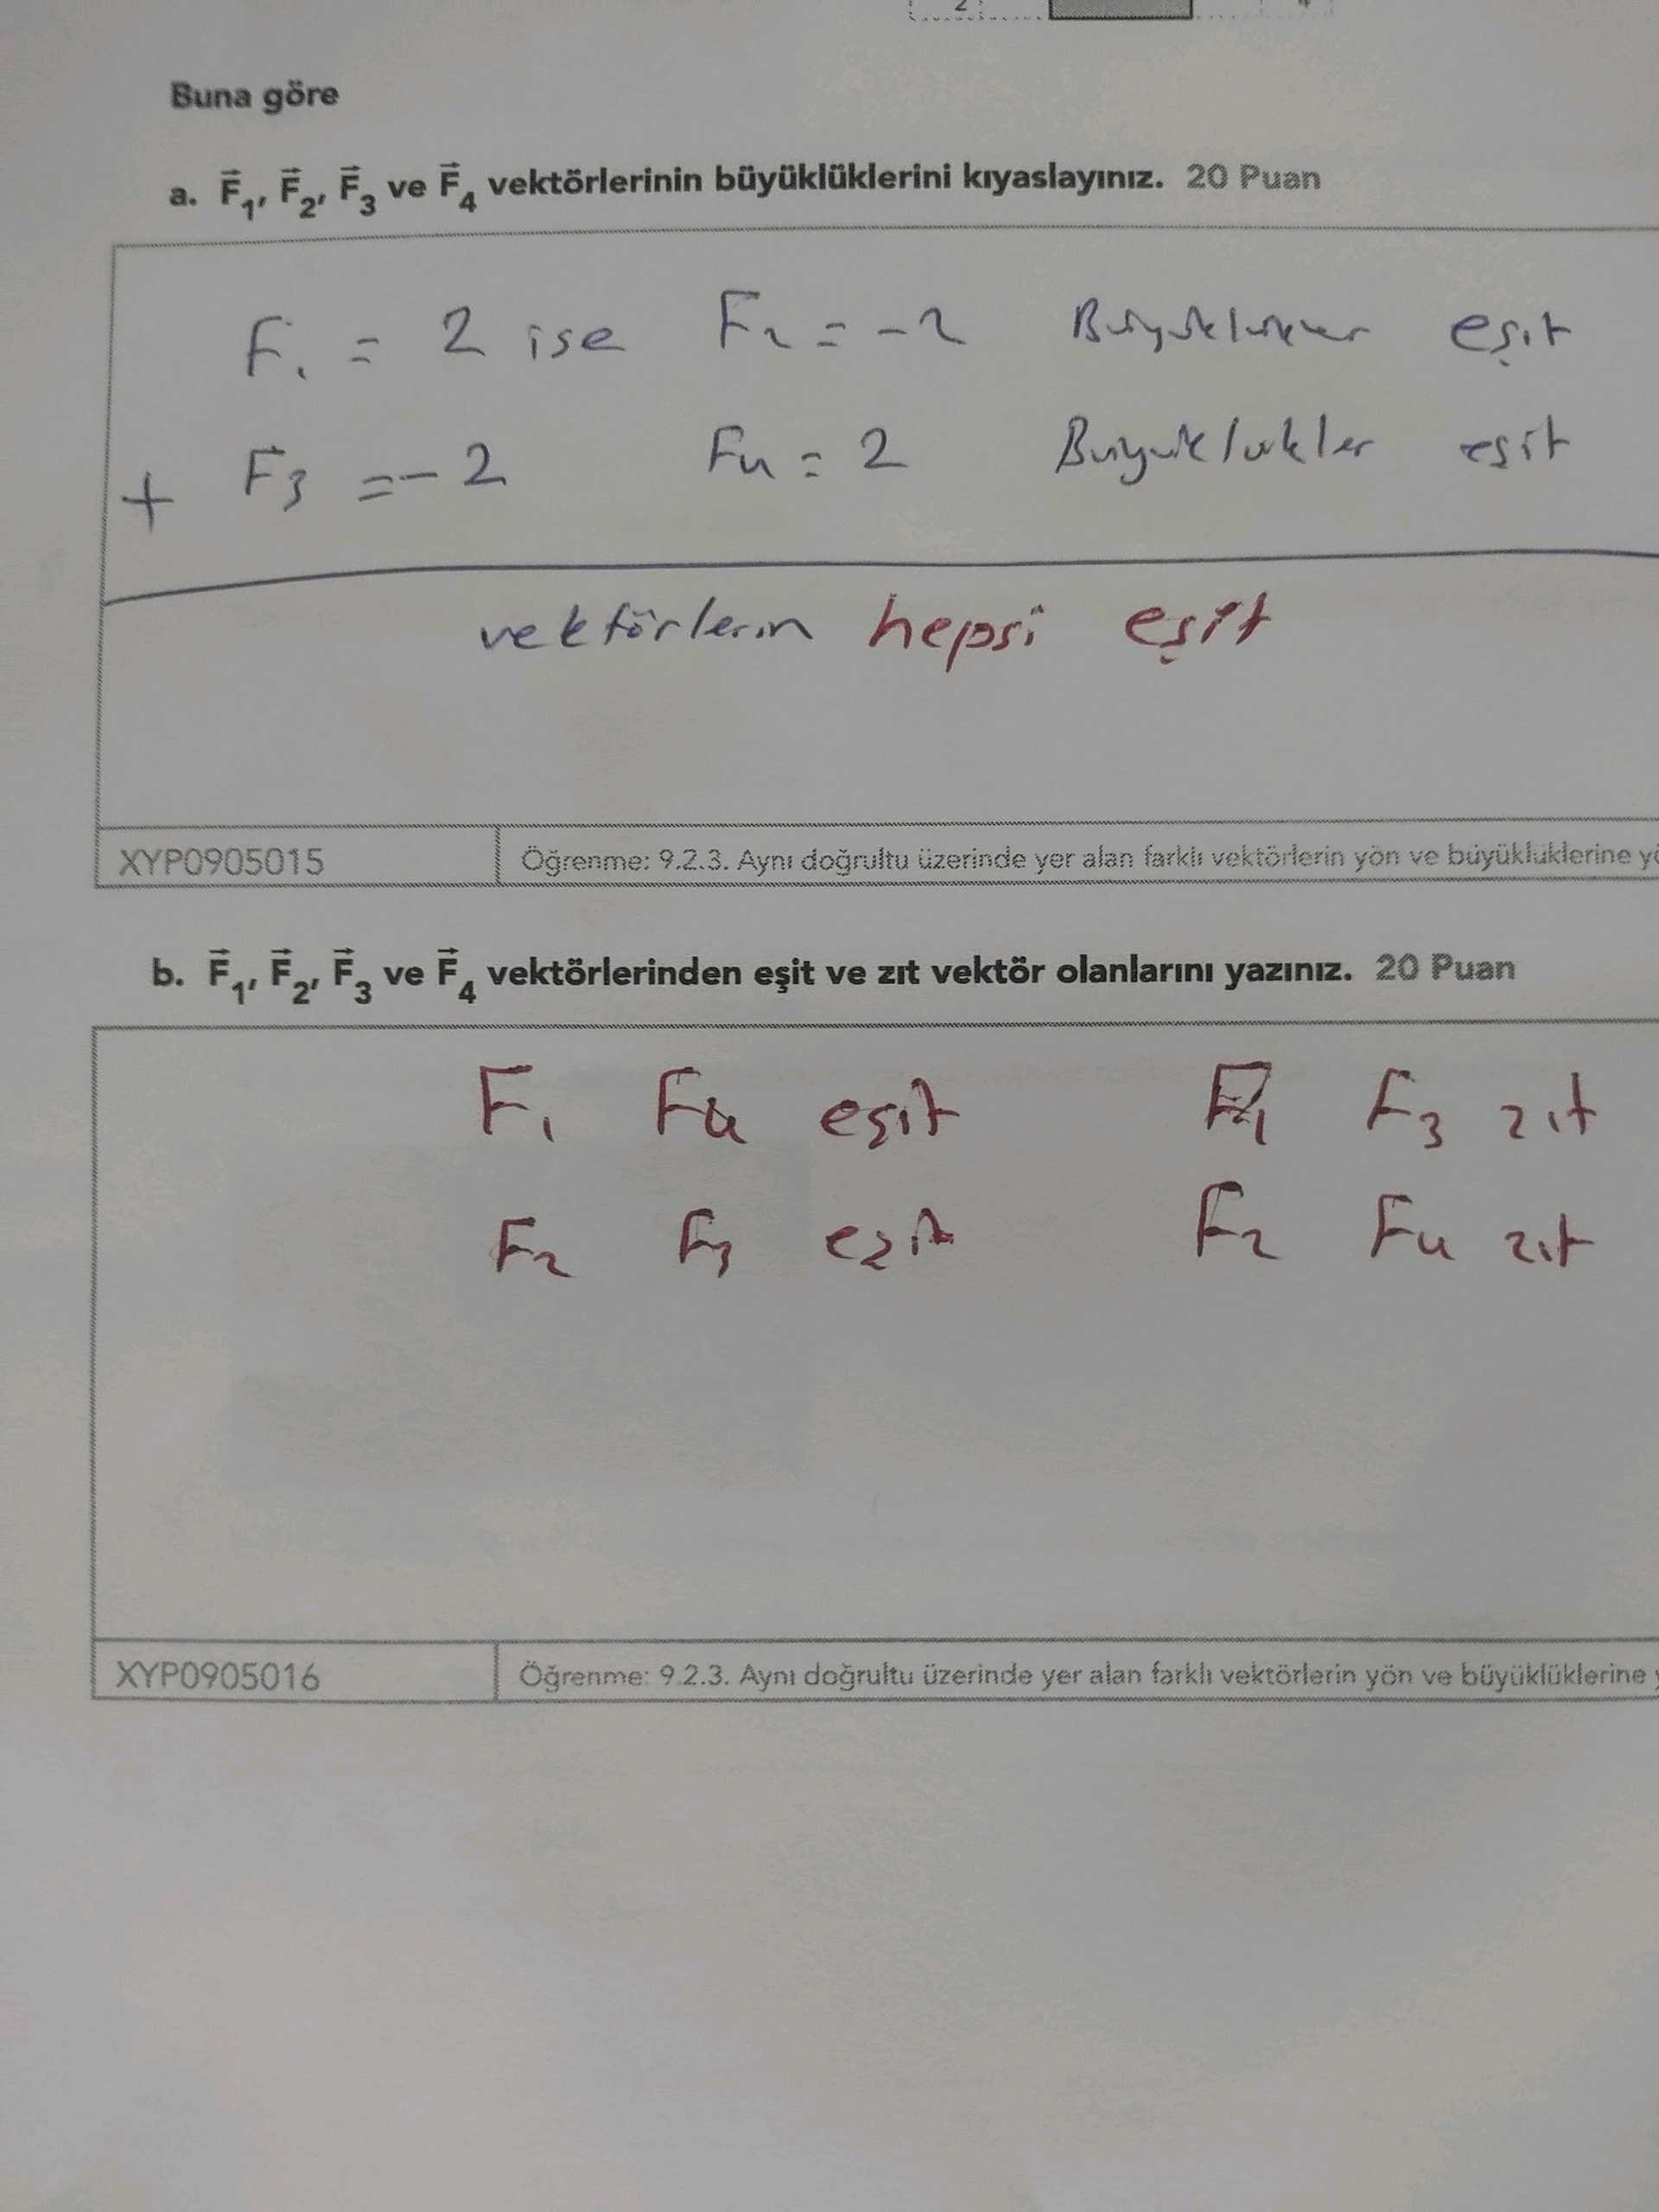 2
Buna göre
a. F⃗1, F⃗2, F⃗3 ve F⃗4 vektörlerinin büyüklüklerini kıyaslayınız. 20 Puan
F1 = 2 ise F2 = -2 eşit
+ F3 = -2 F4 = 2 Büyüklükler eşit
vektörlerin hepsi eşit
XYP0905015 Öğrenme: 9.2.3. Aynı doğrultu üzerinde yer alan farklı vektörlerin yön ve büyüklüklerine
b. F⃗1, F⃗2, F⃗3 ve F⃗4 vektörlerinden eşit ve zıt vektör olanlarını yazınız. 20 Puan
F1 F4 eşit F1 F3 zıt
F2 F3 eşit F2 F4 zıt
XYP0905016 Öğrenme: 9.2.3. Aynı doğrultu üzerinde yer alan farklı vektörlerin yön ve büyüklüklerine